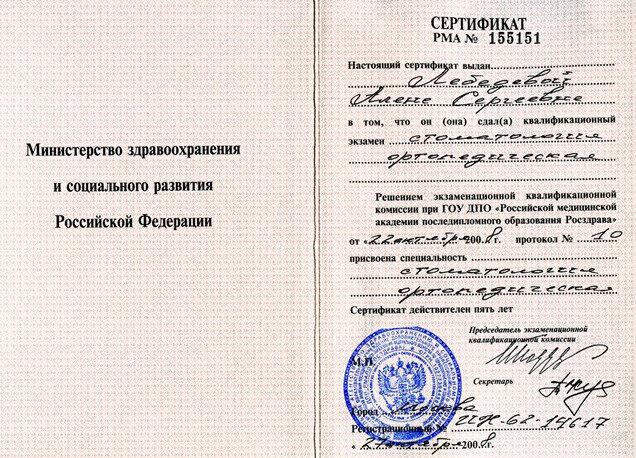 Министерство здравоохранения
и социального развития
Российской Федерации
СЕРТИФИКАТ
РМА № 155151
Настоящий сертификат выдан
Лебедевой
Алене Сергеевне
в том, что он (она) сдал(а) квалификационный
экзамен стоматология
ортопедическая
Решением экзаменационной квалификационной
комиссии при ГОУ ДПО «Российской медицинской
академии последипломного образования Росздрава»
от «22 октября 2008 г. протокол № 10
присвоена специальность
стоматология
ортопедическая
Сертификат действителен пять лет
Председатель экзаменационной
квалификационной комиссии
М.П.
Секретарь
Город Москва
Регистрационный № ИЖ-62-14617
октября 2008